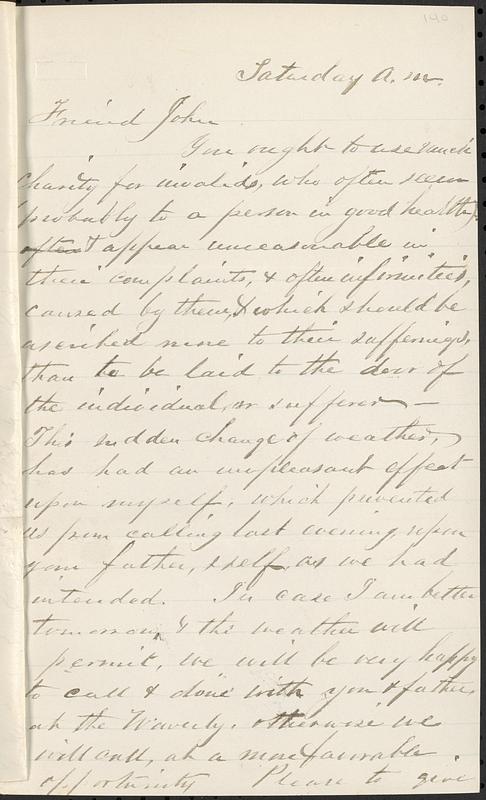 140
Saturday A.m.
Friend John
You ought to use much
charity for invalids, who often seem
probably to a person in good health,
often & appear unreasonable in
their complaints, & often infirmities,
caused by them, & which should be
ascribed more to their sufferings,
than to be laid to the door of
the individual, or sufferer —
This sudden change of weather,
has had an unpleasant effect
upon myself, which prevented
us from calling last evening upon
your father, & self, as we had
intended. In case I am better
tomorrow, & the weather will
permit, we will be very happy
to call & dine with you & father
at the Waverly. otherwise we
will call, at a more favorable
opportunity Please to give